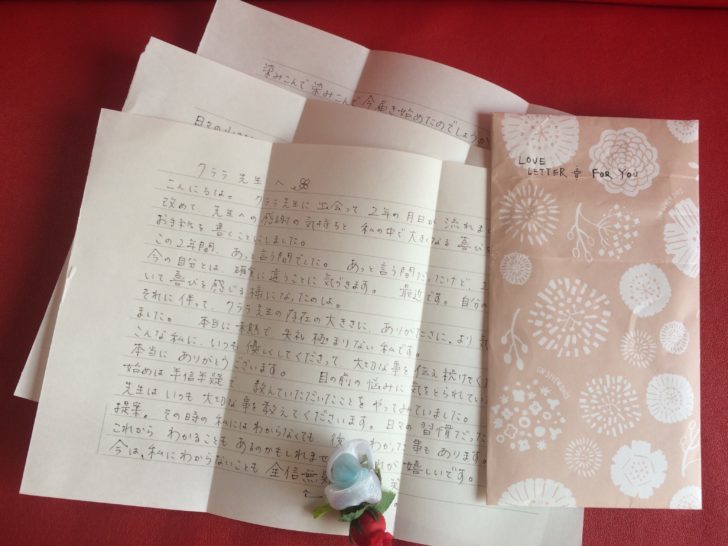 染みこんで染みこんで今届き始めたのでしょうか
日々の
クララ先生へ
こんにちは。クララ先生に出会って2年の月日が流れま
改めて先生への感謝の気持ちと私の中で大きくなる喜びを
お手紙を書くことにしました。
この2年間、あっと言う間でした。あっと言う間だったけど、
今の自分とは、確実に違うことに気できます。最近です。自分の
いて喜びを感じる様になったのは。
それに伴って、クララ先生の存在の大きさに、ありがたさに、より気
ました。本当に未熟で失礼極まりない私です。
こんな私に、いつも優しくしてくださって、大切な事を伝え続けてく
本当にありがとうございます。目の前の悩みに気をとられている
始めは半信半疑で教えていただいたことをやってみていました。
先生はいつも大切な事を教えてくださいます。日々の習慣だった
提案。その時の私にはわからなくても後 わかった事もあります。
これからわかることもあるのかもしれませ が嬉しいです。
今は、私にわからないことも全信無
LOVE
LETTER FOR YOU